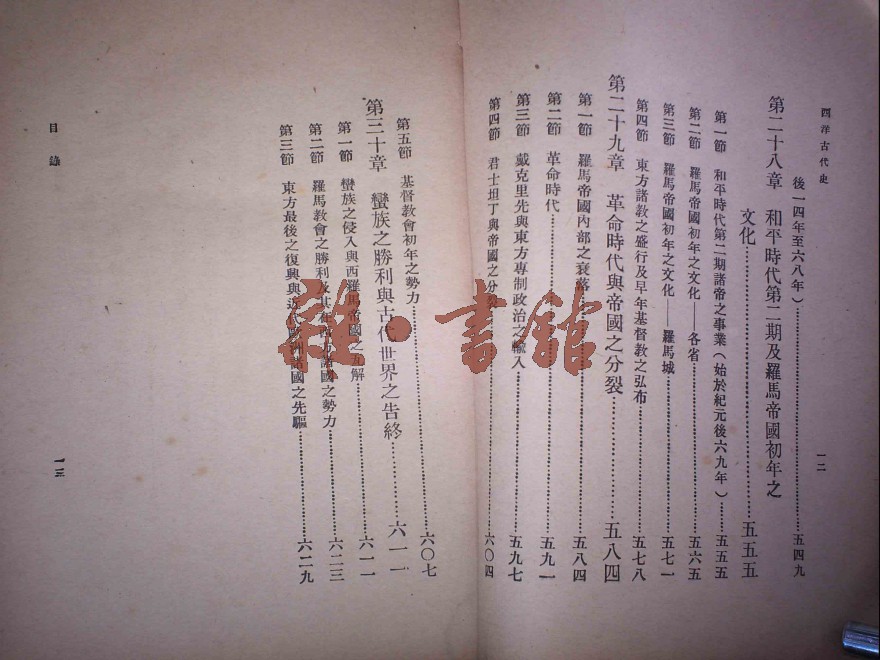 西洋古代史
一二
後一四年至六八年）……五四九
第二十八章　和平時代第二期及羅馬帝國初年之
文化……五五五
第一節　和平時代第二期諸帝之事業（始於紀元後六九年）……五五五
第二節　羅馬帝國初年之文化——各省……五六五
第三節　羅馬帝國初年之文化——羅馬城……五七一
第四節　東方諸教之盛行及早年基督教之弘布……五七八
第二十九章　革命時代與帝國之分裂……五八四
第一節　羅馬帝國內部之衰落……五八四
第二節　革命時代……五九一
第三節　戴克里先與東方專制政治之輸入……五九七
第四節　君士坦丁與帝國之分裂……六〇四
第五節　基督教會初年之勢力……六〇七
第三十章　蠻族之勝利與古代世界之告終……六一一
第一節　蠻族之侵入與西羅馬帝國之瓦解……六一一
第二節　羅馬教會之勝利及其在西方諸國之勢力……六二三
第三節　東方最後之復興與近代歐洲諸國之先驅……六二九
目錄
一三
書館